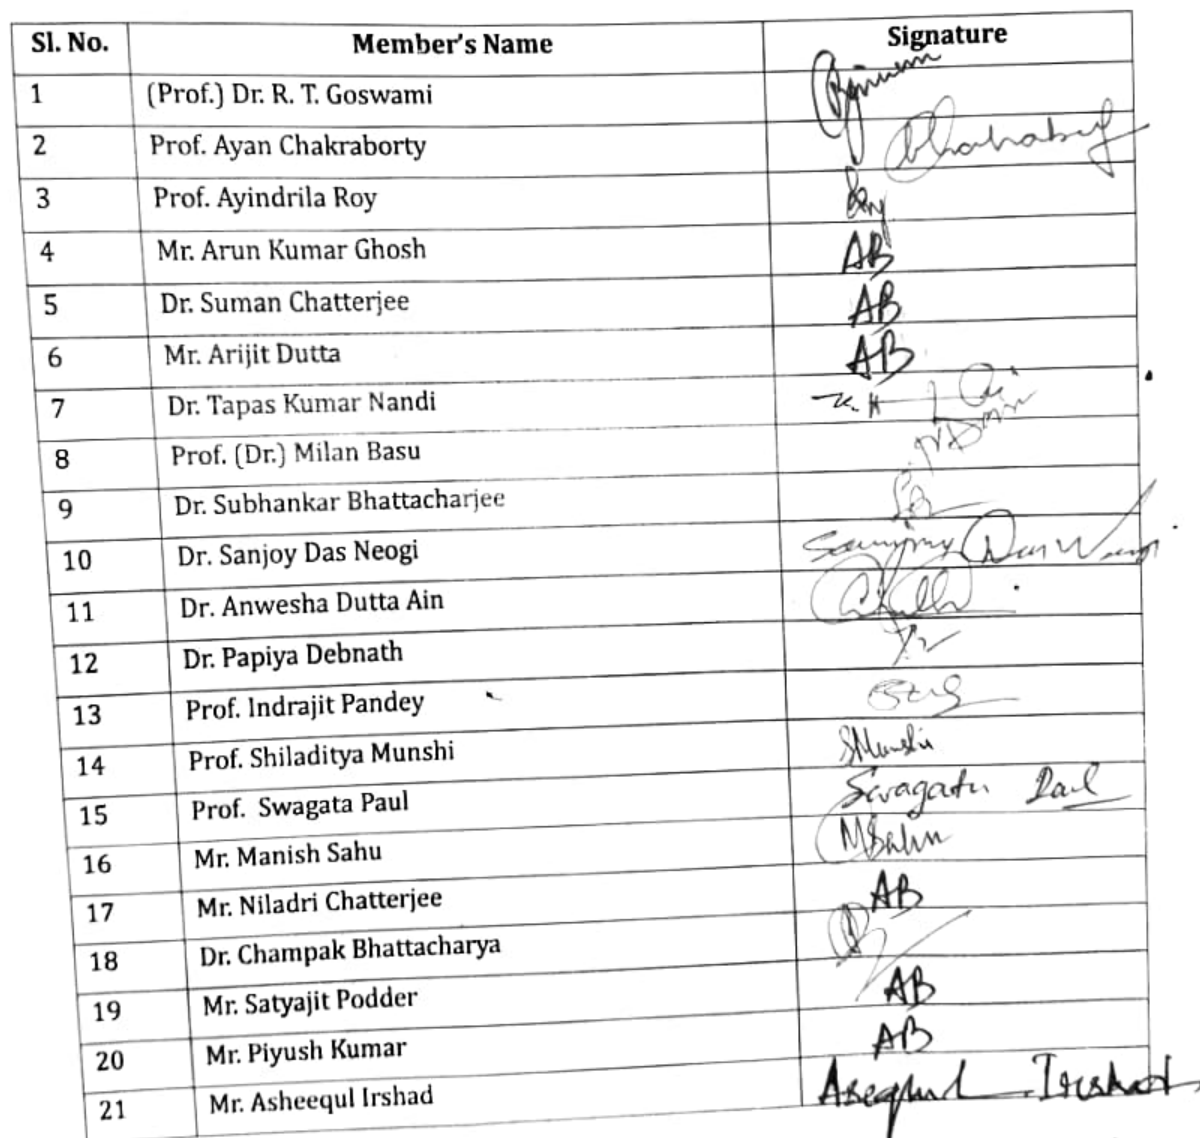 Sl. No. Member's Name Signature
1 (Prof.) Dr. R. T. Goswami
2 Prof. Ayan Chakraborty
3 Prof. Ayindrila Roy
4 Mr. Arun Kumar Ghosh AB
5 Dr. Suman Chatterjee AB
6 Mr. Arijit Dutta AB
7 Dr. Tapas Kumar Nandi
8 Prof. (Dr.) Milan Basu
9 Dr. Subhankar Bhattacharjee
10 Dr. Sanjoy Das Neogi
11 Dr. Anwesha Dutta Ain
12 Dr. Papiya Debnath
13 Prof. Indrajit Pandey
14 Prof. Shiladitya Munshi SMunshi
15 Prof. Swagata Paul Swagata Paul
16 Mr. Manish Sahu MSahu
17 Mr. Niladri Chatterjee AB
18 Dr. Champak Bhattacharya
19 Mr. Satyajit Podder AB
20 Mr. Piyush Kumar AB
21 Mr. Asheequl Irshad Aseequl Irshad